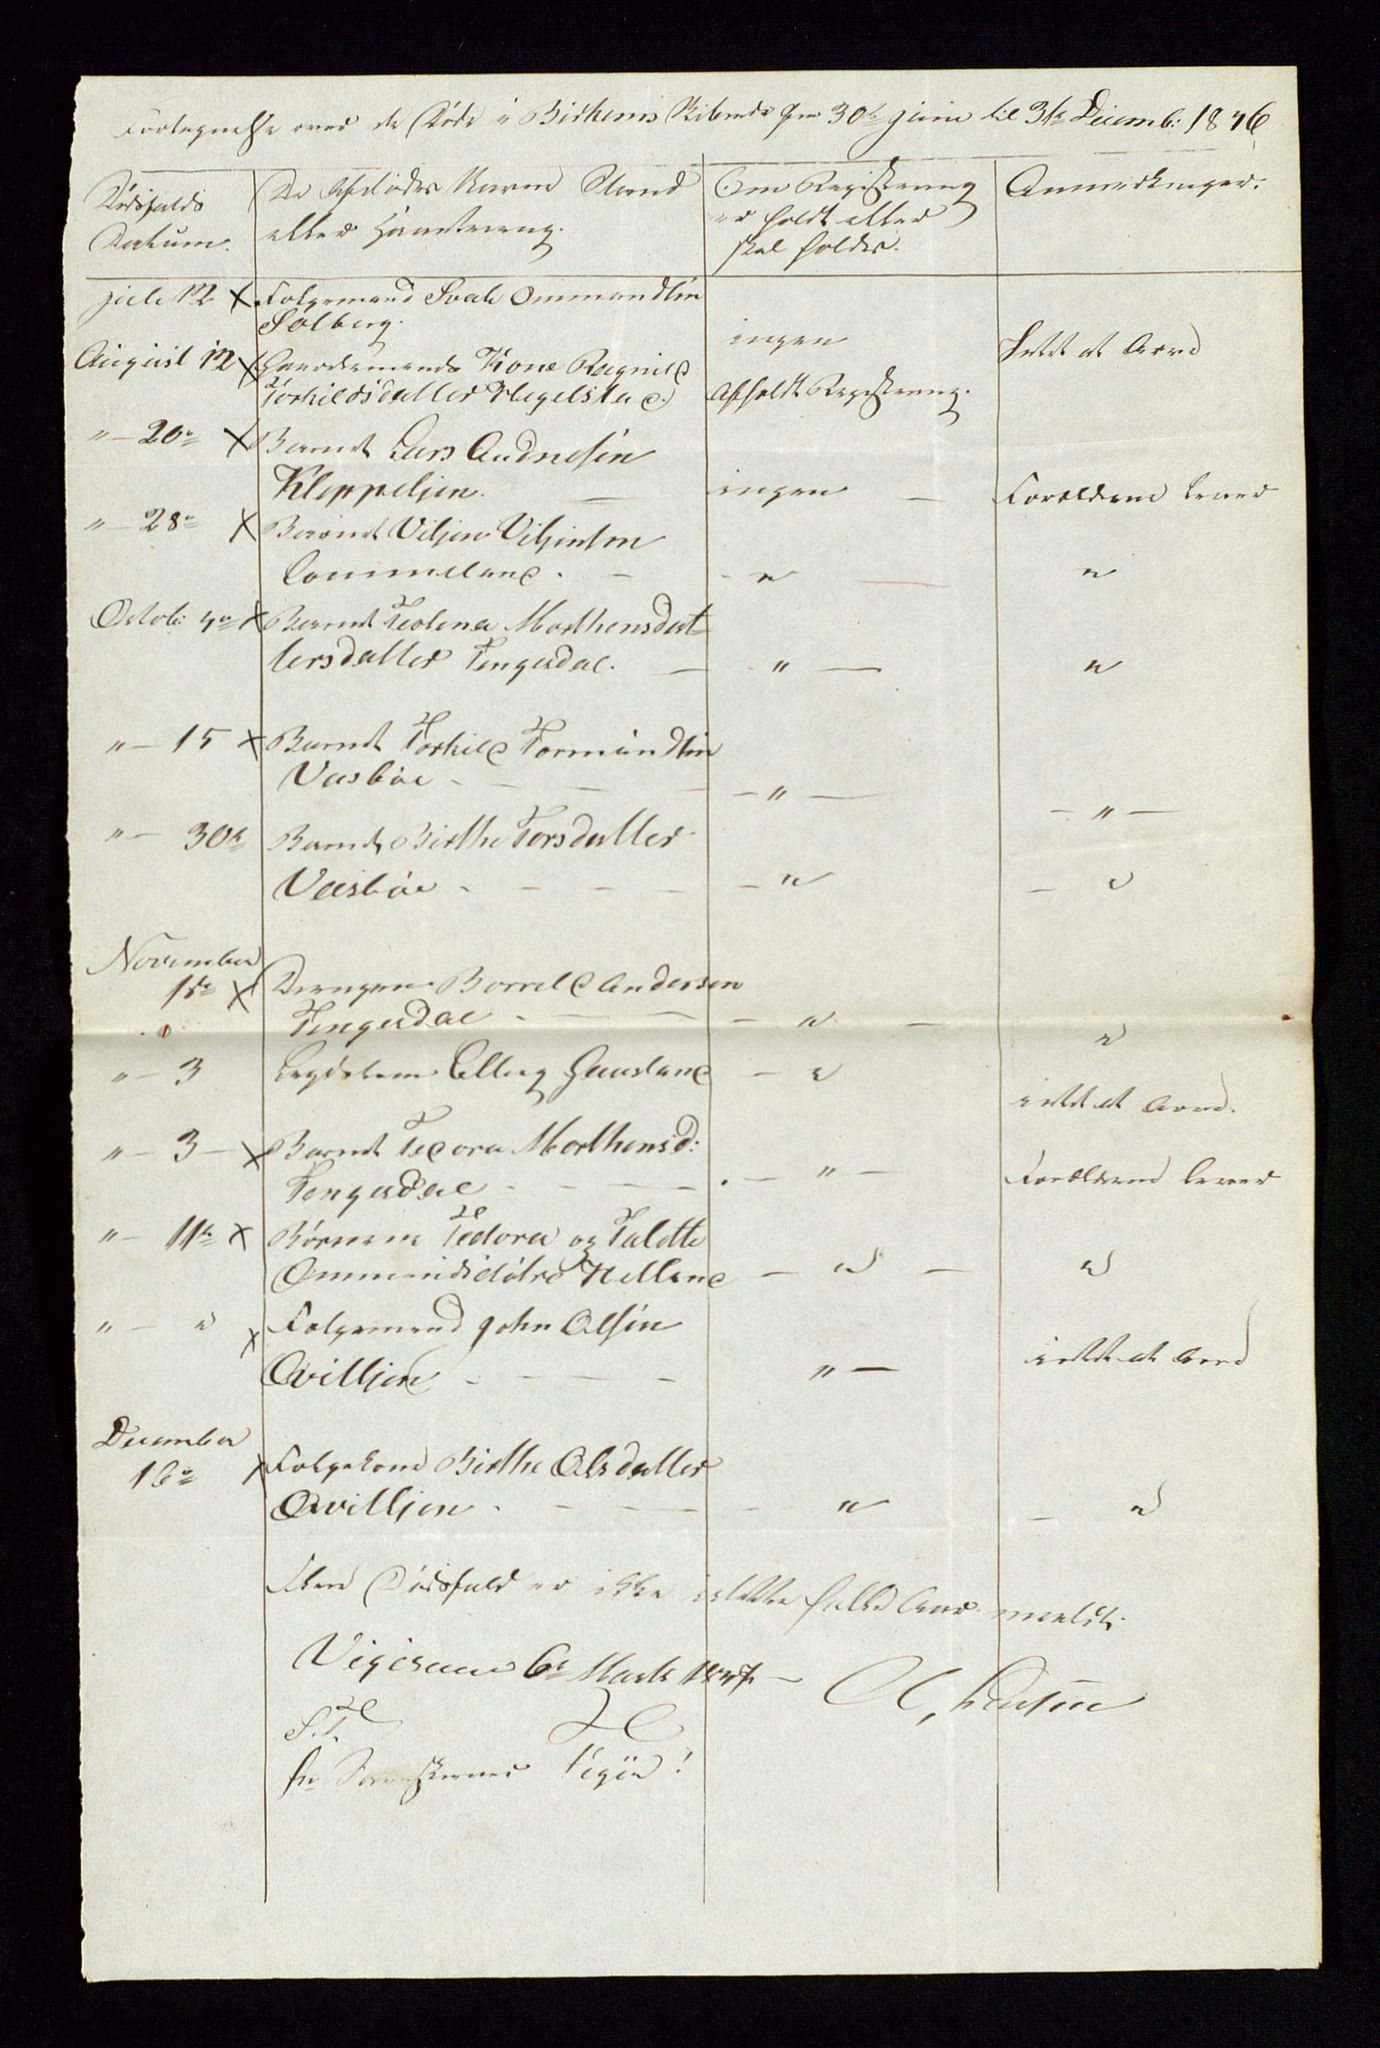 Fortegnelse over de Døde i Birkems Skibrede fra 30te Juni til 31te Decemb: 1846
Dødsfalds Datum. De Afdødes Navne Stand eller Haandtering. Om Registrering er holdt eller skal holdes. Anmerkninger.
Juli 12 x Folgemand Svale Ommundsen
Solberg. ingen Intet at Arve
August 12 x Gaardemands Kone Ragnild
Torkildsdatter Hegelstad. Afholdt Registrering.
" — 20de x Barnet Lars Andresen
Kleppeljen. — ingen — Foreldrene lever
" — 28de x Barnet Viljen Viljensen
Lommeland. — " — "
Octob: 4de x Barnet Teolena Morthensdat=
tersdatter Tengesdal. — " — "
" — 15 x Barnet Torkild Tormundsen
Vasbøe — — " — — " —
" — 30te Barnet Birthe Torsdatter
Vasbøe — — " — "
November
15de x Drengen Borrel Andersen
Tengesdal — — " — "
" — 3 Legdslem Elleg Gausland — " intet at Arve.
" — 3 — x Barnet Tedora Morthensd:
Tengesdal — — " — Foreldrene lever
" — 11te x Børnene Tedora og Talette
Ommundsdøtre Helland — " — "
" — " x Folgemand John Olsen
Qvilljen — — " — intet at Arve
December
16de x Folgekone Birthe Olsdatter
Qvilljen — — " — "
Flere Dødsfald er ikke i dette halve Aar meldt.
Vigesaae 6te Marts 1847 —
S. T.
Hr Sorenskriver Feyer!